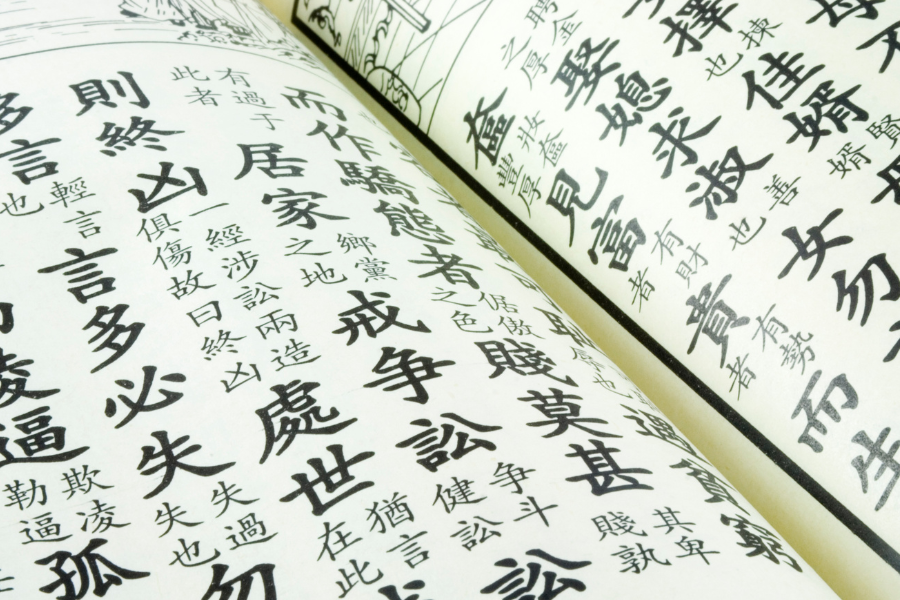 母不
擇揀也佳婿賢婿
聘金之厚娶媳求淑善也女勿
奩妝奩豐厚見富有財者貴有勢者而生
而作驕態者倨傲之色賤莫甚其卑賤孰
有過于此者居家鄉黨之地戒争訟争斗健訟訟
則終凶一經涉訟兩造俱傷故曰終凶處世猶言在此
多言輕言也言多必失失過失也勿
凌逼欺凌勒逼孤